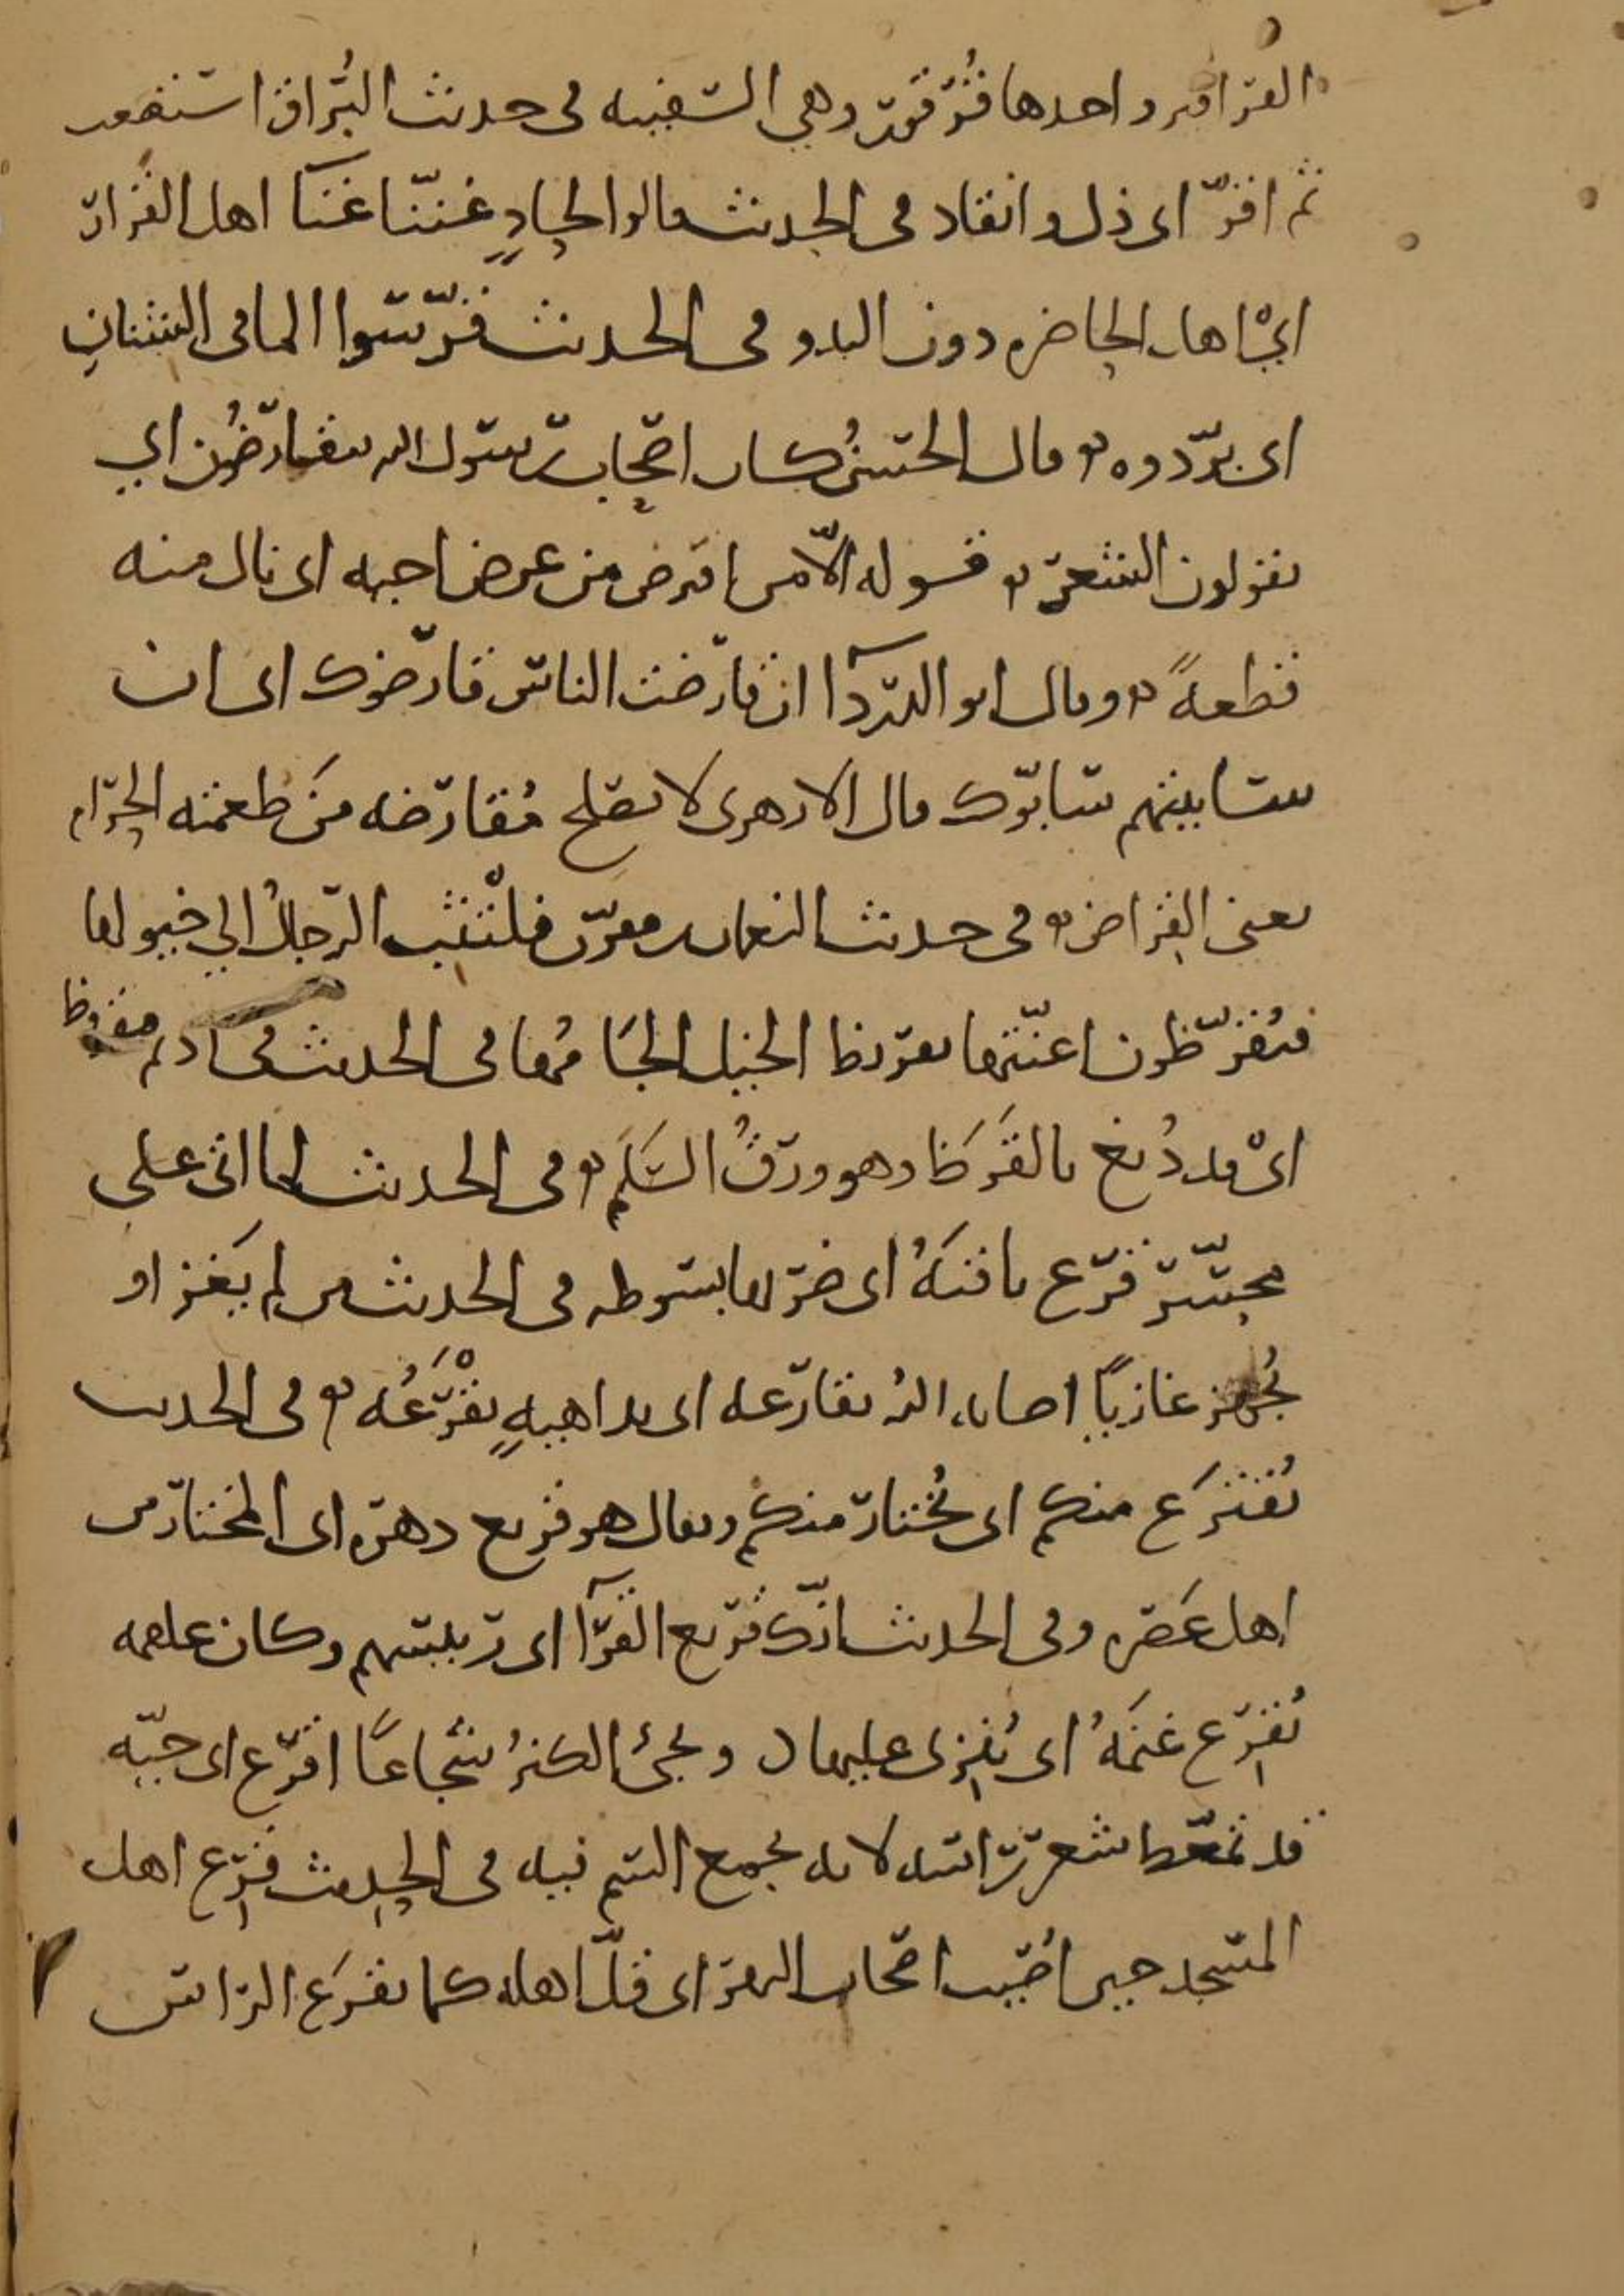 القراقر واحدها قُرقور وهي السفينه في حديث البُراق استصعب
ثم اقرّ اي ذل وانقاد في الحديث قالوا لحادٍ غنّنا غنَآ اهل القرار
ايْ اهل الحاضره دون البدو في الحديث قرّسوا الما في الشنانِ
اي برّدوه وقال الحسنُ كان اصحاب رسول الله يتقارضُون اي
يقولون الشعر قوله الّا من اقترض من عرض اخيه اي نال منه
قطعهً وقال ابو الدردآ ان قارضت الناس قارضوك اي ان
ساببتهم سابّوك قال الازهري لا يصلح مُقارضه مَن طعمته الحرام
يعني القراض في حديث النعمان بن مقرّن فلْتثب الرجالُ الي خيولها
فيُقرّظون اعنّتها تقريظ الخيل الجَا مُها في الحديث في اديم مقروظ
ايْ قد دُبغ بالقَرَظ وهو ورقُ السَلَم في الحديث لما اتى على
محسّر قرّع ناقتَهُ اي ضربها بسوطه في الحديث من لم يَغز او
يُجهز غازيًا اصابه الله بقارعه اي بداهيهٍ يقْرَعُه في الحديث
يُقترَع منكم اي يُختار منكم ويقال هو قريع دهره اي المختار من
اهل عَصره وفي الحديث انّك قريع القُرّآ اي رئيسهم وكان علقمه
يُقرّع غنمَهُ اي يُنزي عليها ويجئ الكنزُ شُجاعًا اقرع اي حيّه
قد تمعّط شعر راسه لانه يجمع السم فيه في الحديث قرِع اهل
المسجد حين اُصيب اصحاب النهر اي قلّ اهله كما يقرَع الراس